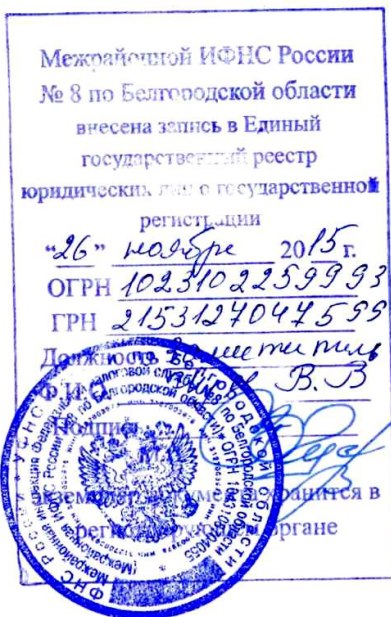 Межрайонной ИФНС России
№ 8 по Белгородской области
внесена запись в Единый
государственный реестр
юридических лиц о государственной
регистрации
"26" ноября 2015 г.
ОГРН 1023102259993
ГРН 2153127047599
Должность Заместитель
Ф.И.О. В.В
Подпись
М.П.
Экземпляр документа хранится в
регистрирующем органе